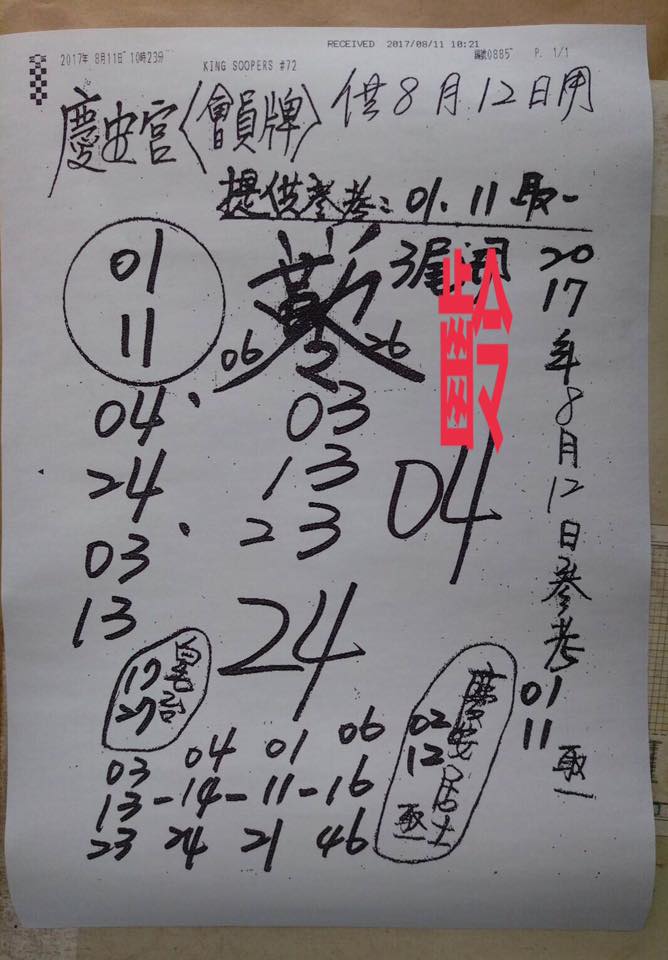 RECEIVED 2017/08/11 10:21
2017年 8月11日 10時23分 KING SOOPERS #72 編號0885 P. 1/1
慶安宮〈會員牌〉供8月12日用
提供參考：01.11取一
01
11
04、
24
03、
13
06 2 26
03
13
23
24
3尾
齡
04
2017年8月12日參考
01
11
取一
17
27
慶安居士
02
12
取一
03 04 01 06
13-14-11-16
23 24 21 46